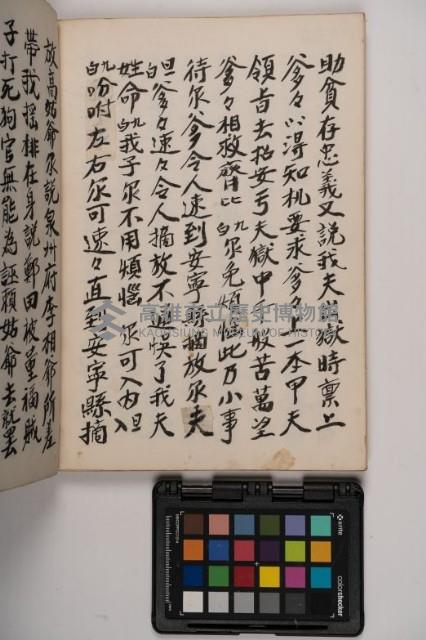 助貧存忠義又說我夫獄時禀上
爹々心得知机要求爹々本甲夫
領旨去招安亏夫獄中般苦萬望
爹々相救齊比 白尔免煩此乃小事
待尔爹令人速到安寧縣摘放尔夫
旦爹々速々令人摘放不遲悞了我夫
姓命 白我子尔不用煩惱 尔可入內 旦入
白吩咐左右尔可速々直到安寧縣摘
放高姑爺尔說泉州府李相爺所差
帶我搖排在身說鄭田被董福賊
子打死狗官無能為誣賴姑爺去就罢
高雄市立歷史博物館
KAOHSIUNG MUSEUM OF HISTORY
x-rite
colorchecker